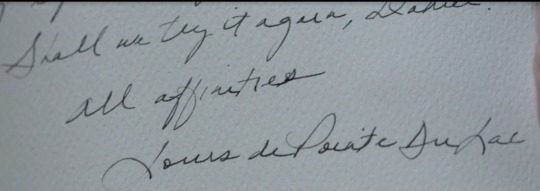 Shall we try it again, Daniel.
All affinities
Louis de Pointe Du Lac